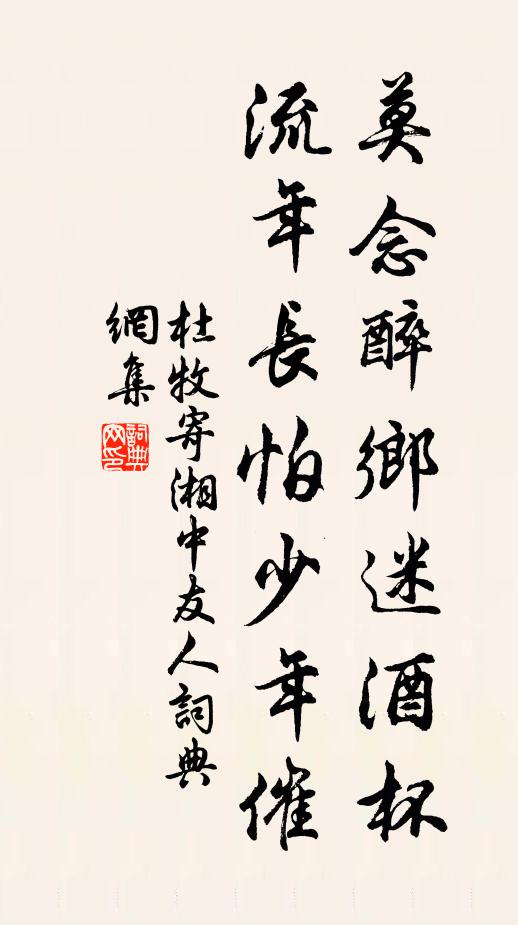 莫念醉鄉迷酒杯
流年長怕少年催
杜牧寄湘中友人詞典
網集
詞典
网印